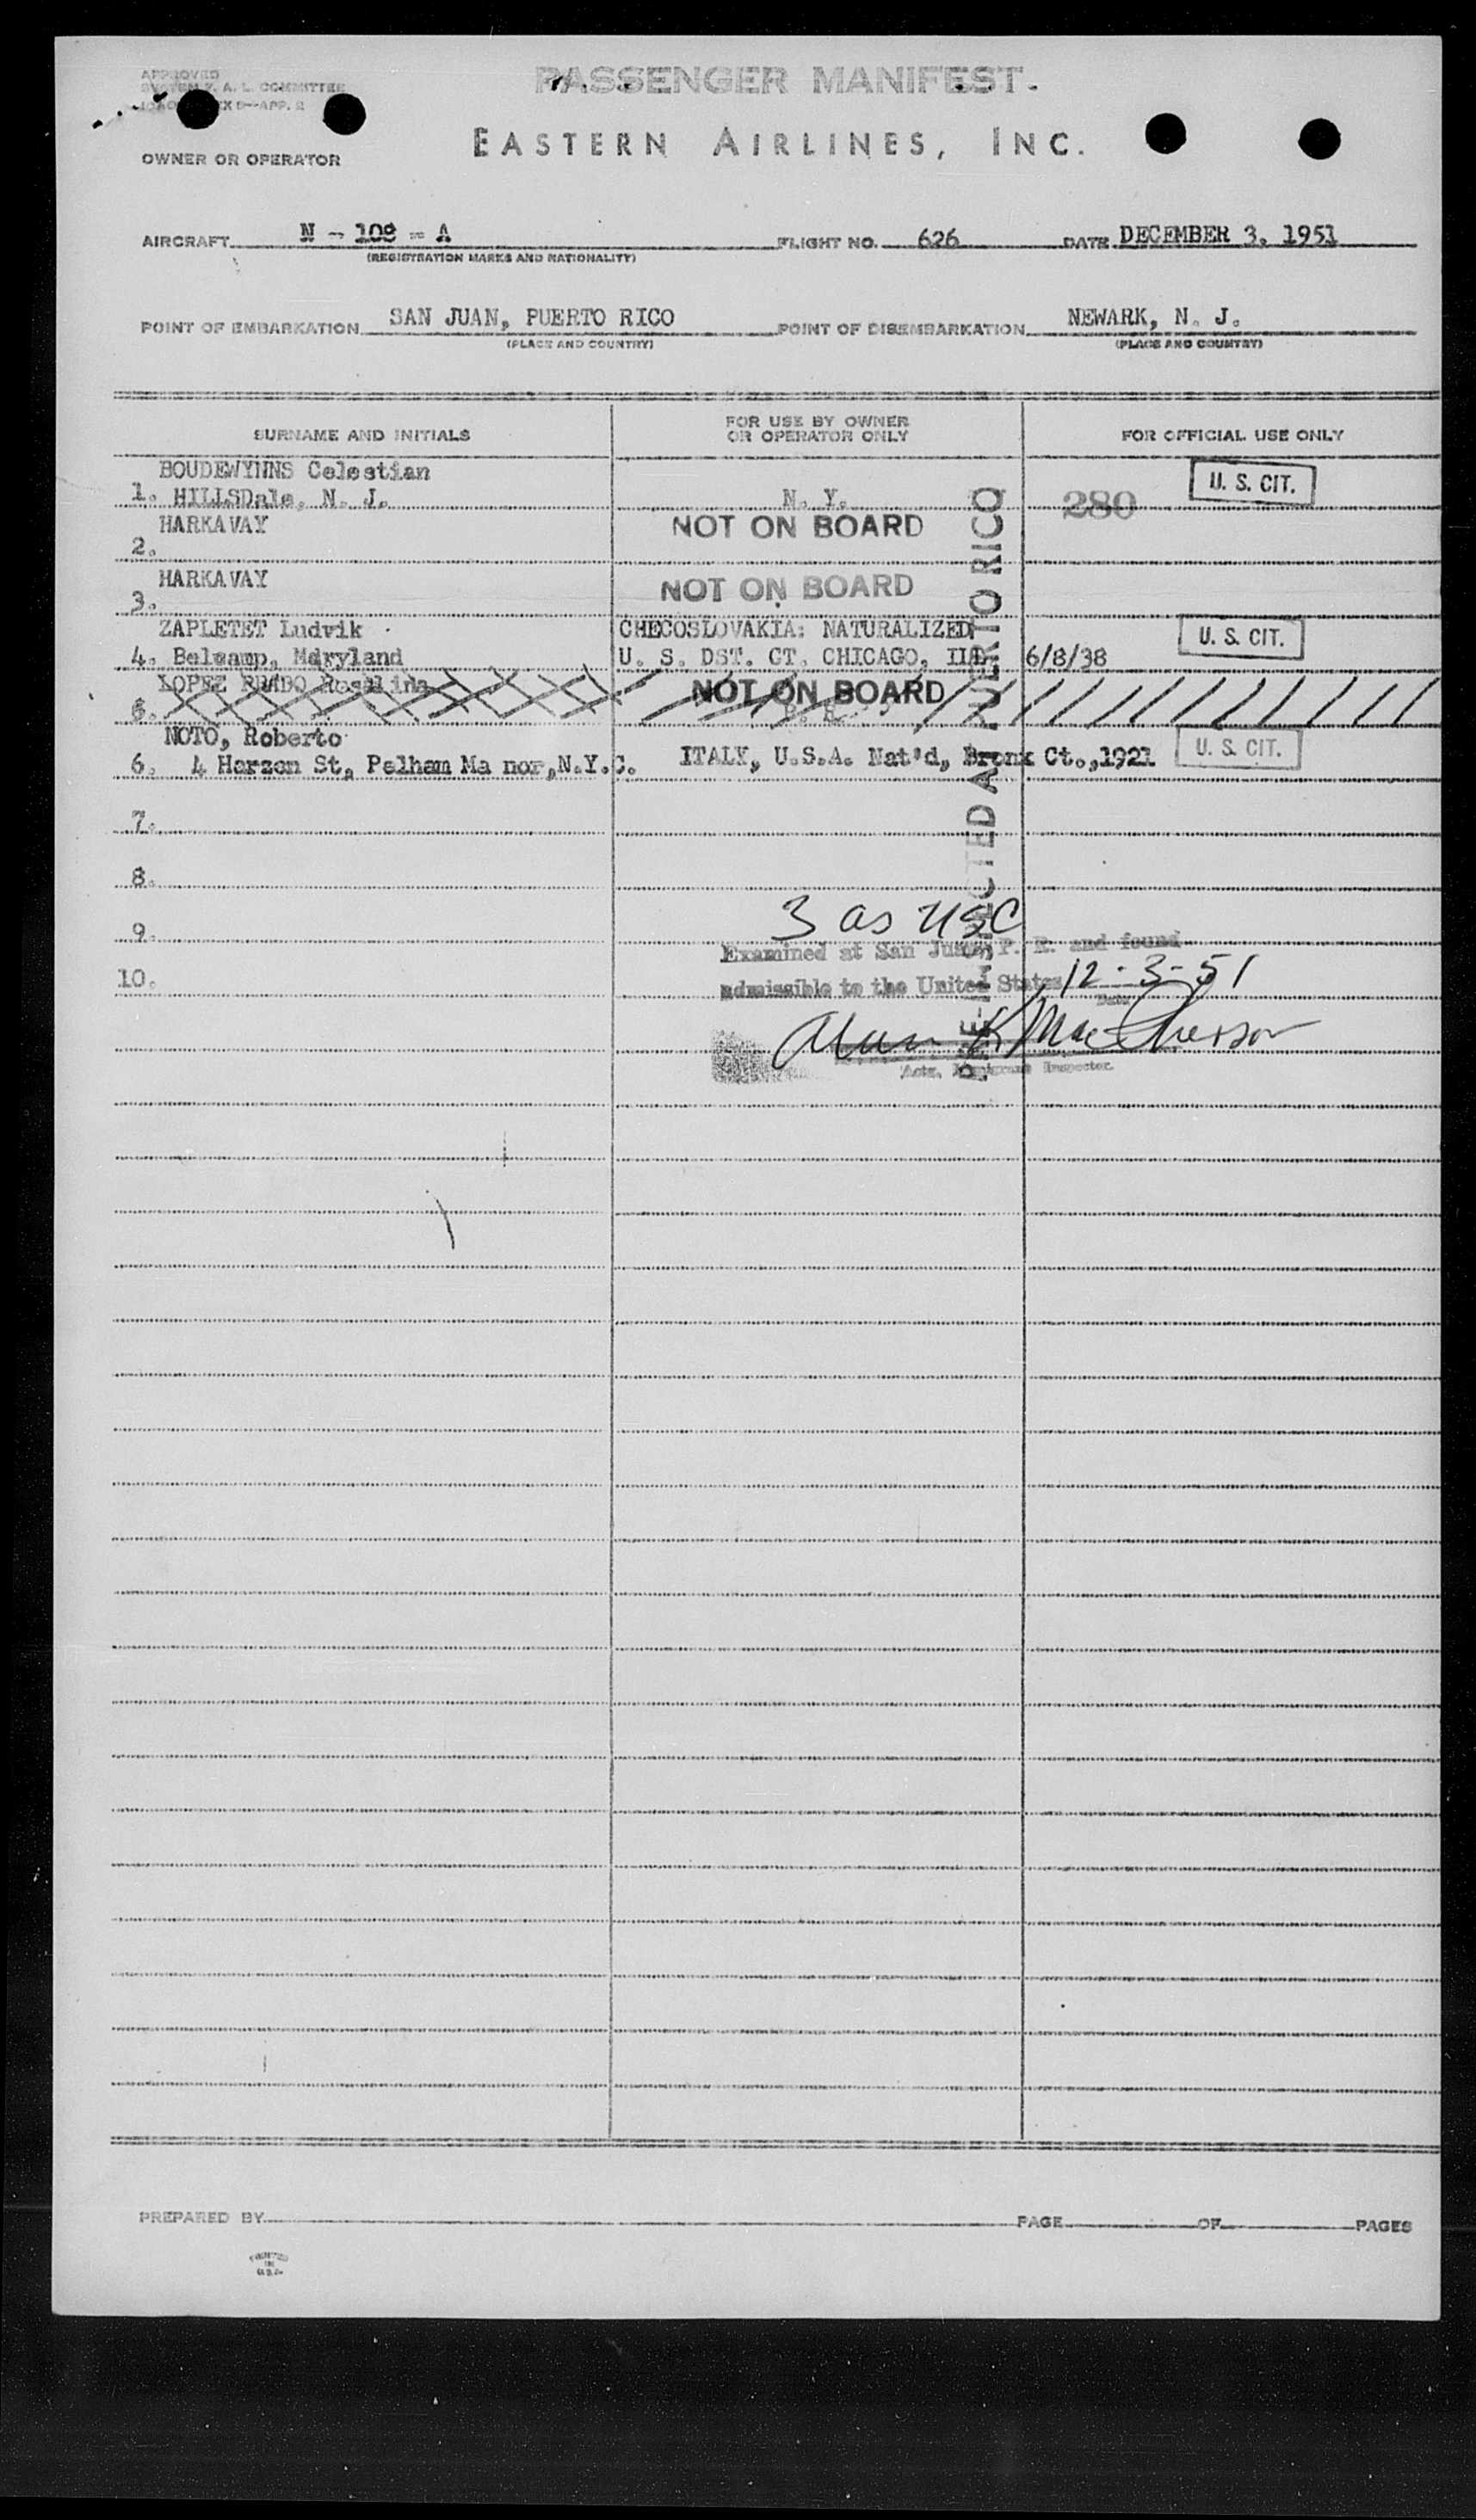 APPROVED
SYSTEM F. A. L. COMMITTEE
ICAO X 9—APP. 2
PASSENGER MANIFEST.
EASTERN AIRLINES, INC.
OWNER OR OPERATOR
AIRCRAFT N - 108 - A FLIGHT NO. 626 DATE DECEMBER 3, 1951
(REGISTRATION MARKS AND NATIONALITY)
POINT OF EMBARKATION SAN JUAN, PUERTO RICO POINT OF DISEMBARKATION NEWARK, N. J.
(PLACE AND COUNTRY) (PLACE AND COUNTRY)
SURNAME AND INITIALS
FOR USE BY OWNER
OR OPERATOR ONLY
FOR OFFICIAL USE ONLY
BOUDEWYNNS Celestian
1. HILLSDale, N. J. N. Y. 280 U. S. CIT.
HARKAVAY NOT ON BOARD
2.
HARKAVAY NOT ON BOARD
3.
ZAPLETET Ludvik CHECOSLOVAKIA: NATURALIZED U. S. CIT.
4. Belcamp, Maryland U. S. DST. CT. CHICAGO, ILL 6/8/38
LOPEZ Rosalina NOT ON BOARD
5. P. R.
NOTO, Roberto
6. 4 Harzen St, Pelham Ma nor,N.Y.C. ITALY, U.S.A. Nat'd, Bronx Ct.,1921 U. S. CIT.
7.
8.
9. 3 as USC
Examined at San Juan, P. R. and found
10. admissible to the United States 12-3-51
Date
Alan K MacPherson
Actg. Immigrant Inspector
PRE-INSPECTED AT PUERTO RICO
PREPARED BY PAGE OF PAGES
PRINTED
IN
U.S.A.